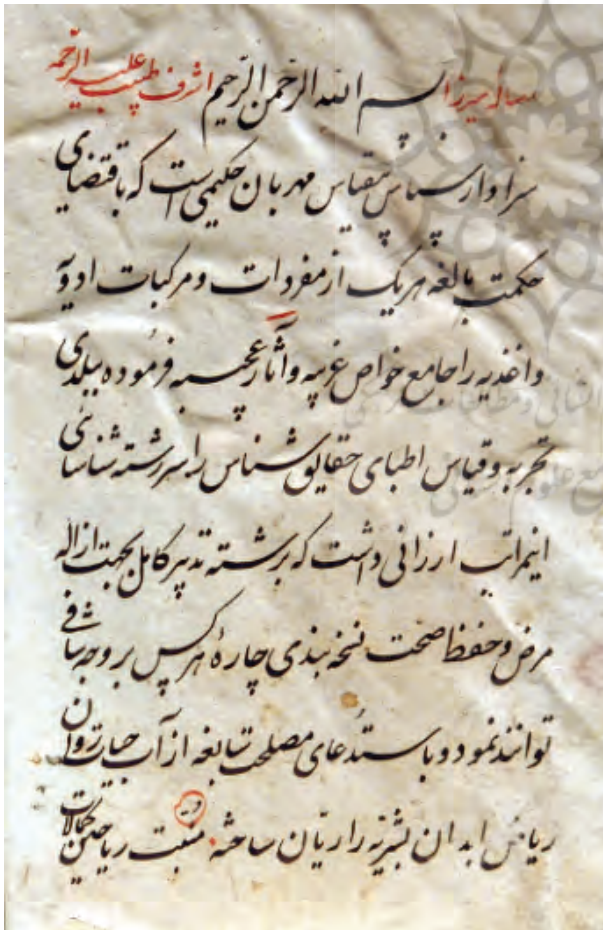 رساله میرزا بسم الله الرحمن الرحیم اشرف طبیب علیه الرحمه
سزاوار سپاس بیقیاس مهربان حکیمی است که باقتضای
حکمت بالغه هریک از مفردات و مرکبات ادویه
واغذیه را جامع خواص غریبه و آثار عجیبه فرموده ببلدی
تجربه و قیاس اطبای حقایق شناس را سررشته شناسائی
اینمراتب ارزانی داشت که برشته تدبیر کامل بجهت ازاله
مرض و حفظ صحت نسخه بندی چارهٔ هر کس بر وجه شافی
توانند نمود و باستدعای مصلحت سابغه از آب حیات روان
ریاض ابدان بشریه را ریان ساخته منبت ریاحین کمالات